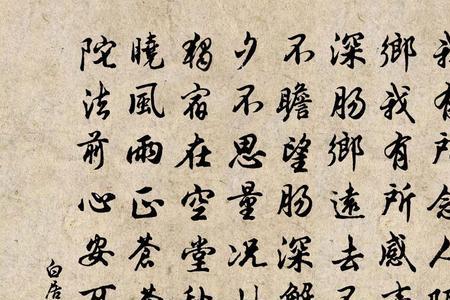 我有所念人
鄉我有所感事
深腸鄉遠去不
不瞻望腸深解
夕不思量況此
獨宿在空堂秋
曉風雨正蒼蒼
陀法前心安可
白居